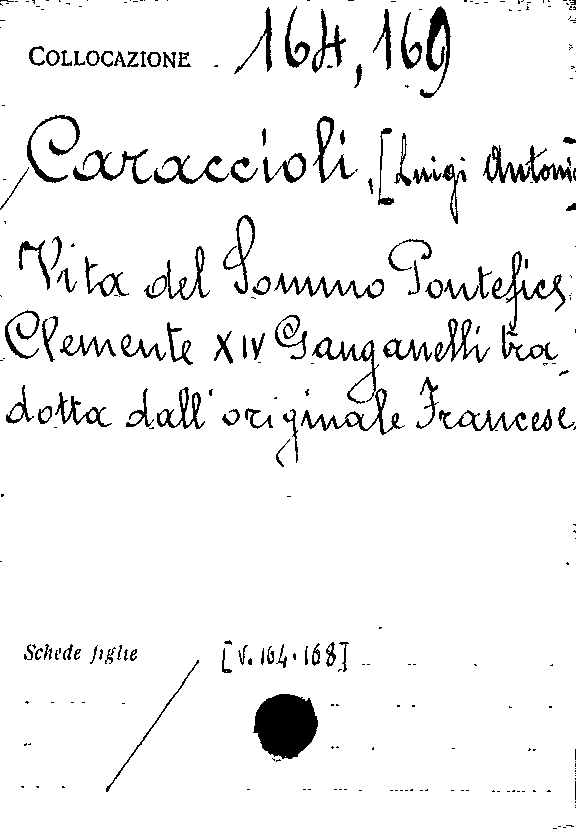 COLLOCAZIONE 164,169
Caraccioli, [Luigi Antoni
Vita del Sommo Pontefice
Clemente XIV Ganganelli tra
dotta dall'originale Francese
Schede figlie [V. 164.168]